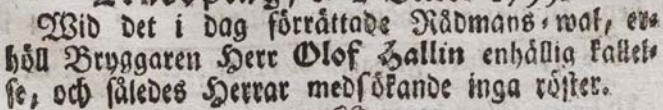 Wid det i dag förrättade Rådmans-wal, er-
höll Bryggaren Herr Olof Hallin enhällig kallel-
se, och således Herrar medsökande inga röster.